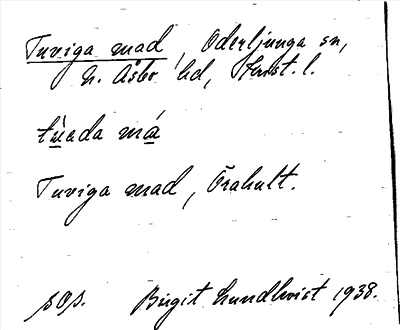 Tuviga mad, Oderljunga sn,
N. Åsbo hd, Krist. l.
tùada má
Tuviga mad, Örahult.
sOp. Birgit Lundkvist 1938.